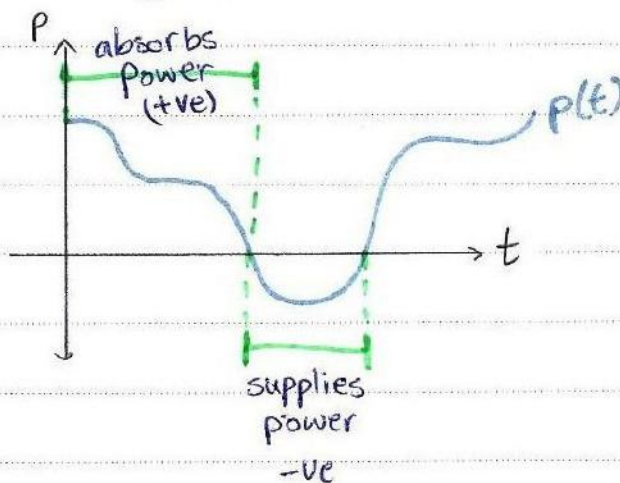 P
absorbs
power
(+ve)
p(t)
t
supplies
power
-ve